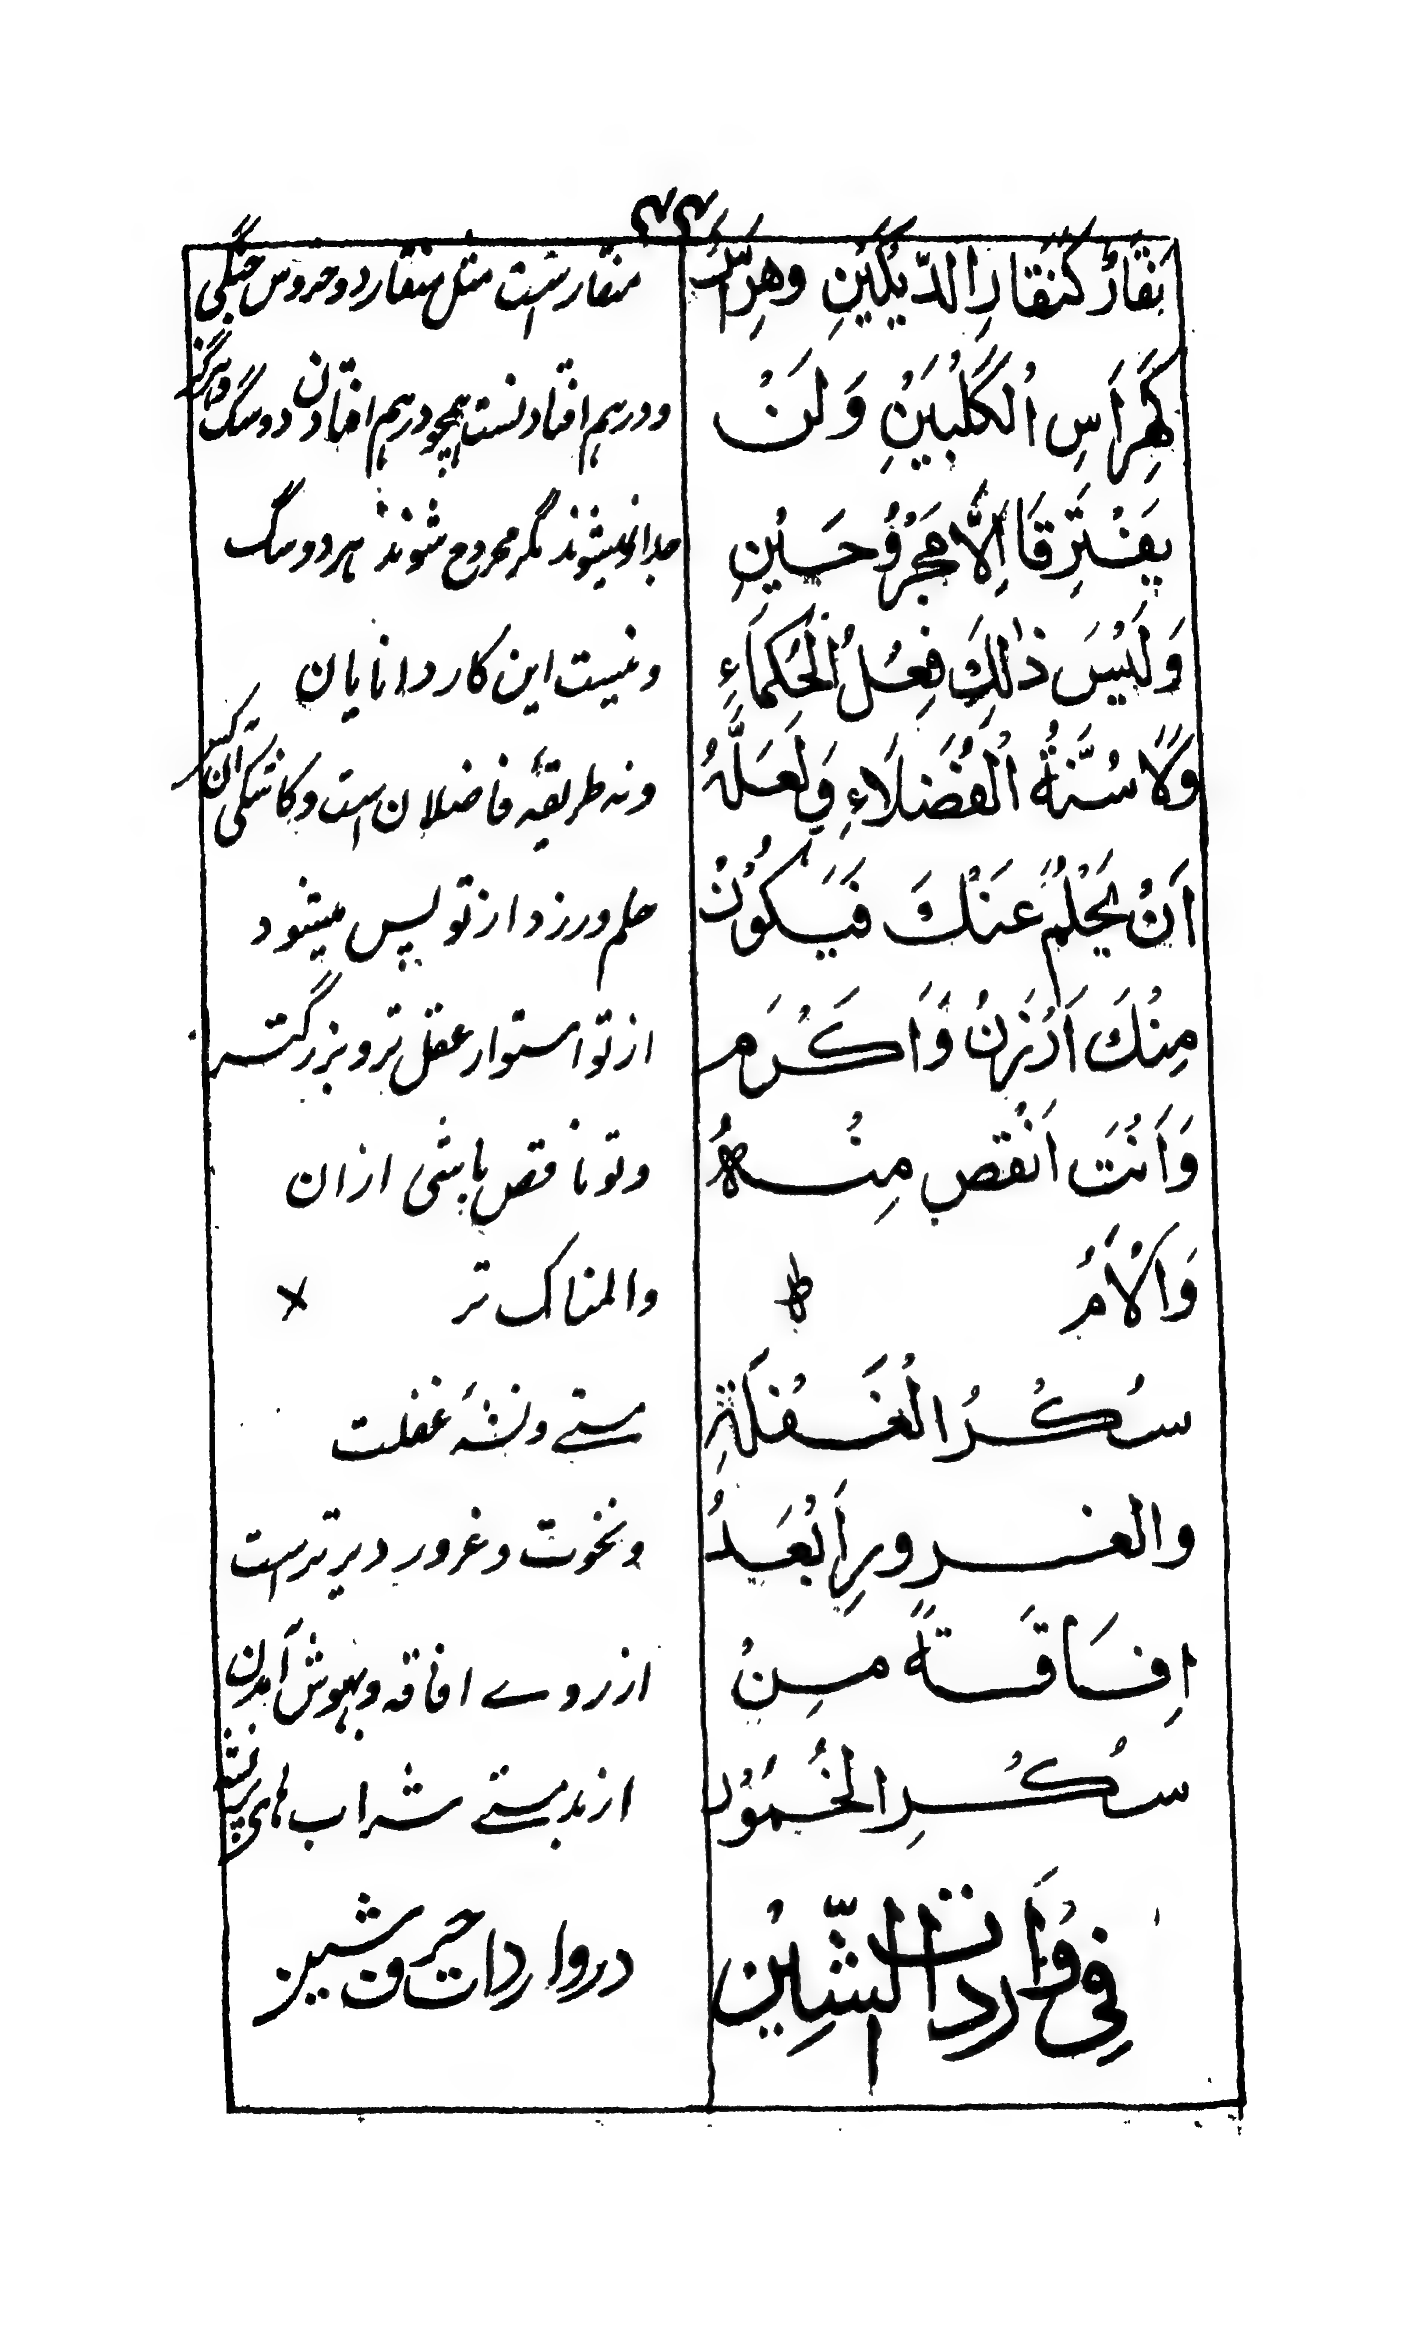 ۴۴
نِقَارٌ كَنِقَارِ الدِّيكَيْنِ وهِرَاشٌ
منقار زنیست مثل منقار دو خروس جنگی
كَهِرَاسِ الْكَلْبَيْنِ وَلَنْ
و درهم افتاد نست همچو درهم افتادن دو سگ و هرگز
يَفْتَرِقَا اِلَّا مَجْرُوْحَيْنِ
جدا نمیشوند مگر مجروح شوند هر دو سگ
وَلَيْسَ ذٰلِكَ فِعْلُ الْحُكَمَاءِ
و نیست این کار دانایان
وَلَا سُنَّةُ الْفُضَلَاءِ وَلَعَلَّهُ
و نه طریقهٔ فاضلان است و کاشکی آن کس
اَنْ يَحْلُمَ عَنْكَ فَيَكُوْنُ
حلم ورزد از تو پس میشود
مِنْكَ اَرْزَنُ وَاَكْرَمُ
از تو استوار عقل تر و بزرگتر
وَاَنْتَ اَنْقَصُ مِنْهُ
و تو ناقص باشی ازان
وَالْاَمُ ط
والمناک تر ×
سُكْرُ الْغَفْلَةِ
مستے و نشۂ غفلت
والغرورِ اَبْعَدُ
و نخوت و غرور دیرتر است
اِفَاقَةً مِنْ
از روے افاقه و بهوش آمدن
سُكْرِ الْخُمُوْرِ
از بدمستے شراب های پر نشه
فِي وَارِدَاتِ الشِّيْنِ
در واردات حرف شین